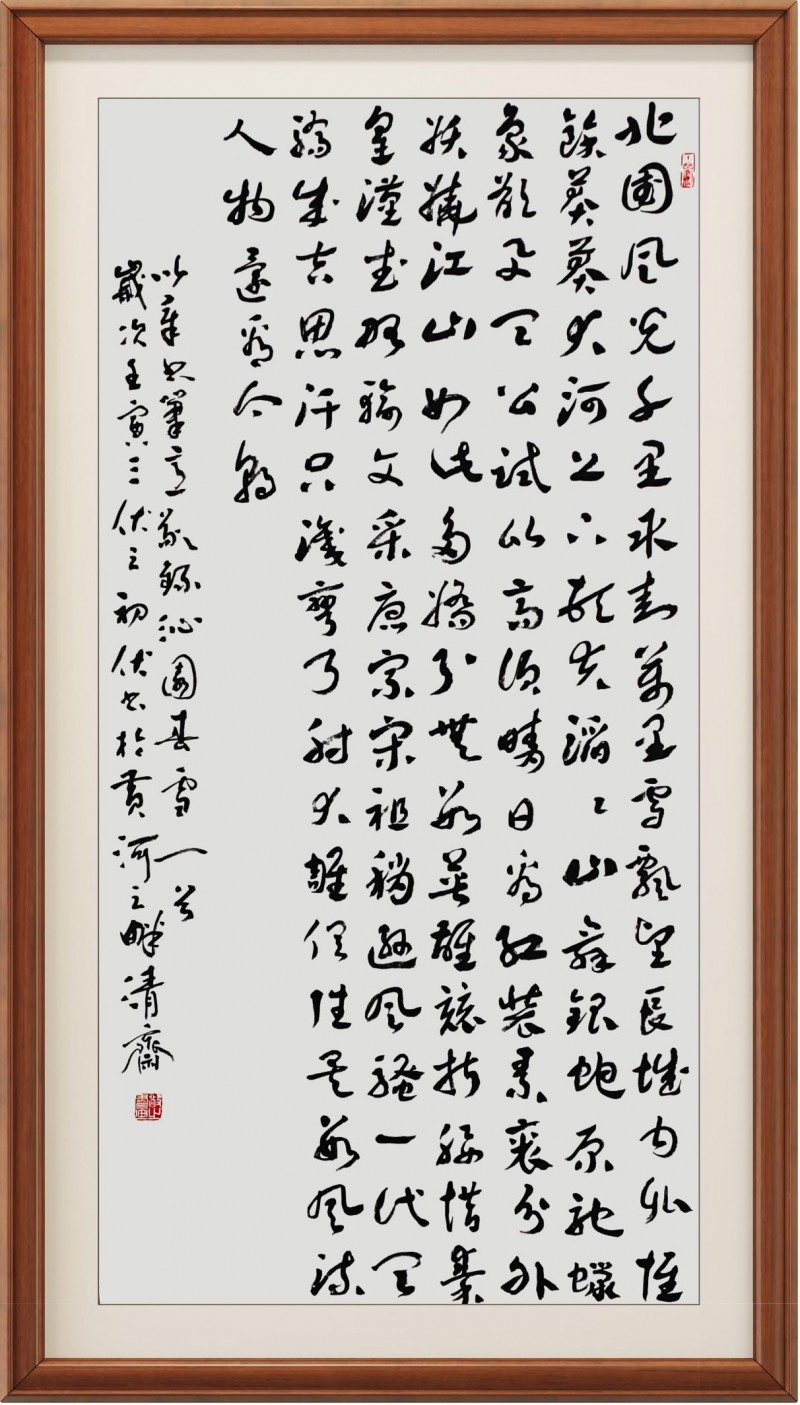 北國風光千里冰封萬里雪飄望長城內外惟
餘莽莽大河上下頓失滔〻山舞銀蛇原馳蠟
象欲与天公試比高須晴日看紅裝素裹分外
妖嬈江山如此多嬌引無數英雄競折腰惜秦
皇漢武略輸文采唐宗宋祖稍遜風騷一代天
驕成吉思汗只識彎弓射大雕俱往矣數風流
人物還看今朝
以章草筆意敬錄沁園春雪一首
歲次壬寅三伏之初伏書於黃河之畔清齋